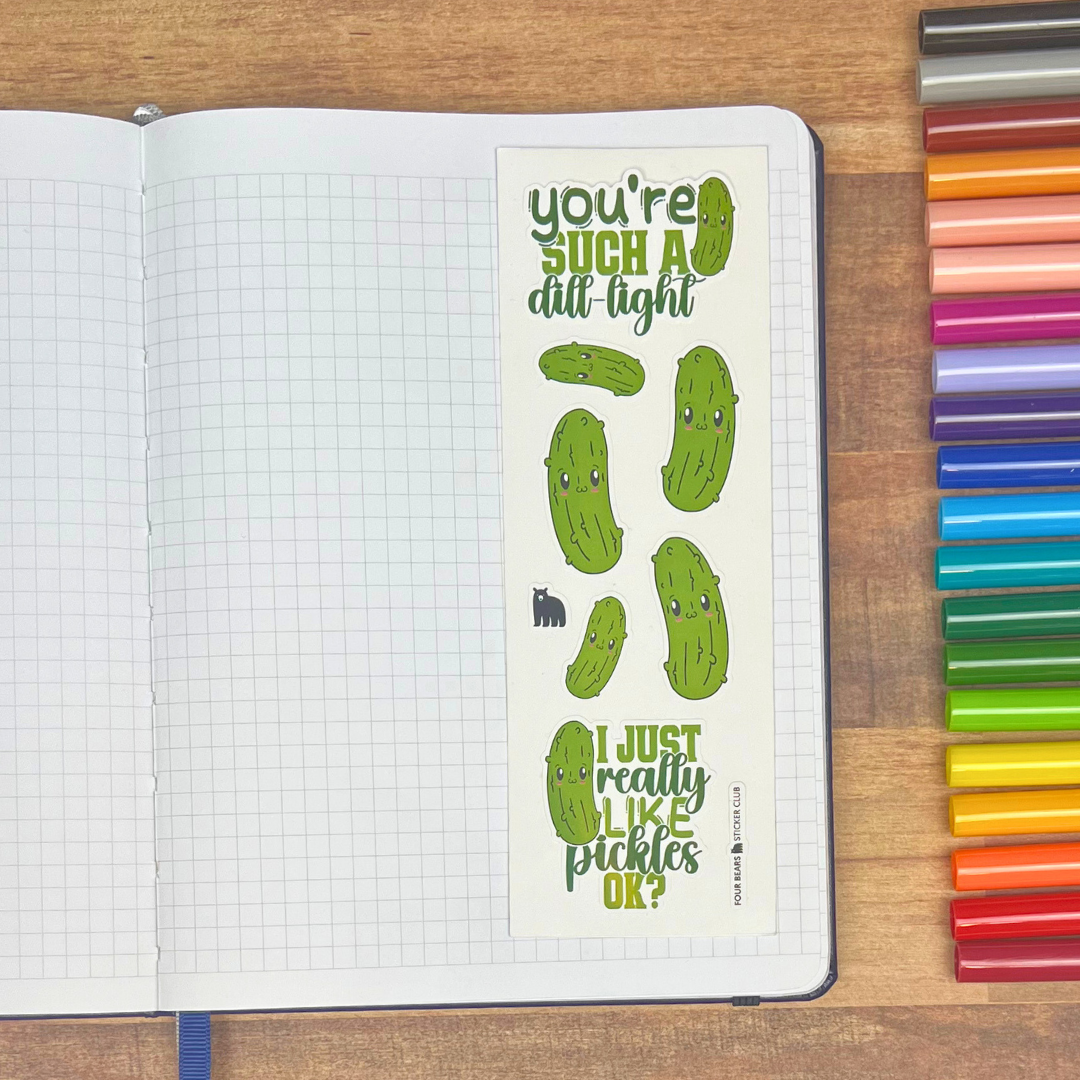 you're
SUCH A
dill-light
I JUST
really
LIKE
pickles
OK?
FOUR BEARS STICKER CLUB